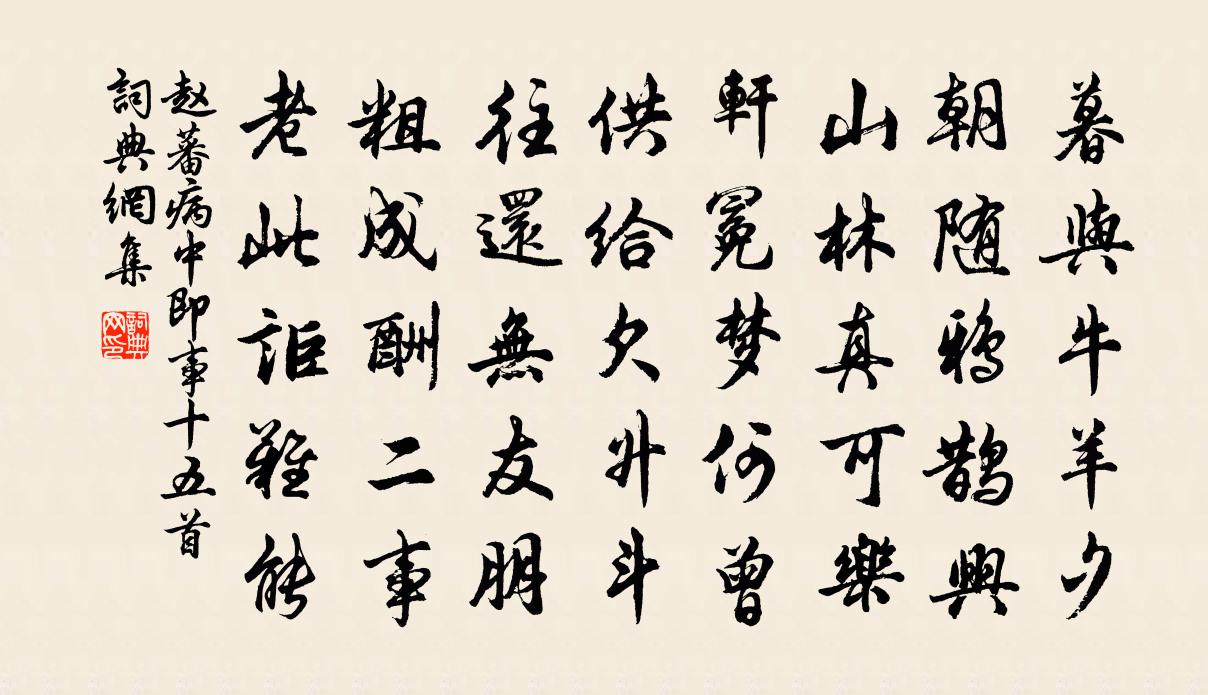 暮與牛羊夕
朝随鴉鵲興
山林真可樂
軒冕梦何曾
供给欠升斗
往還無友朋
粗成酬二事
老此詎難能
赵蕃病中即事十五首
詞典網集
詞典网印